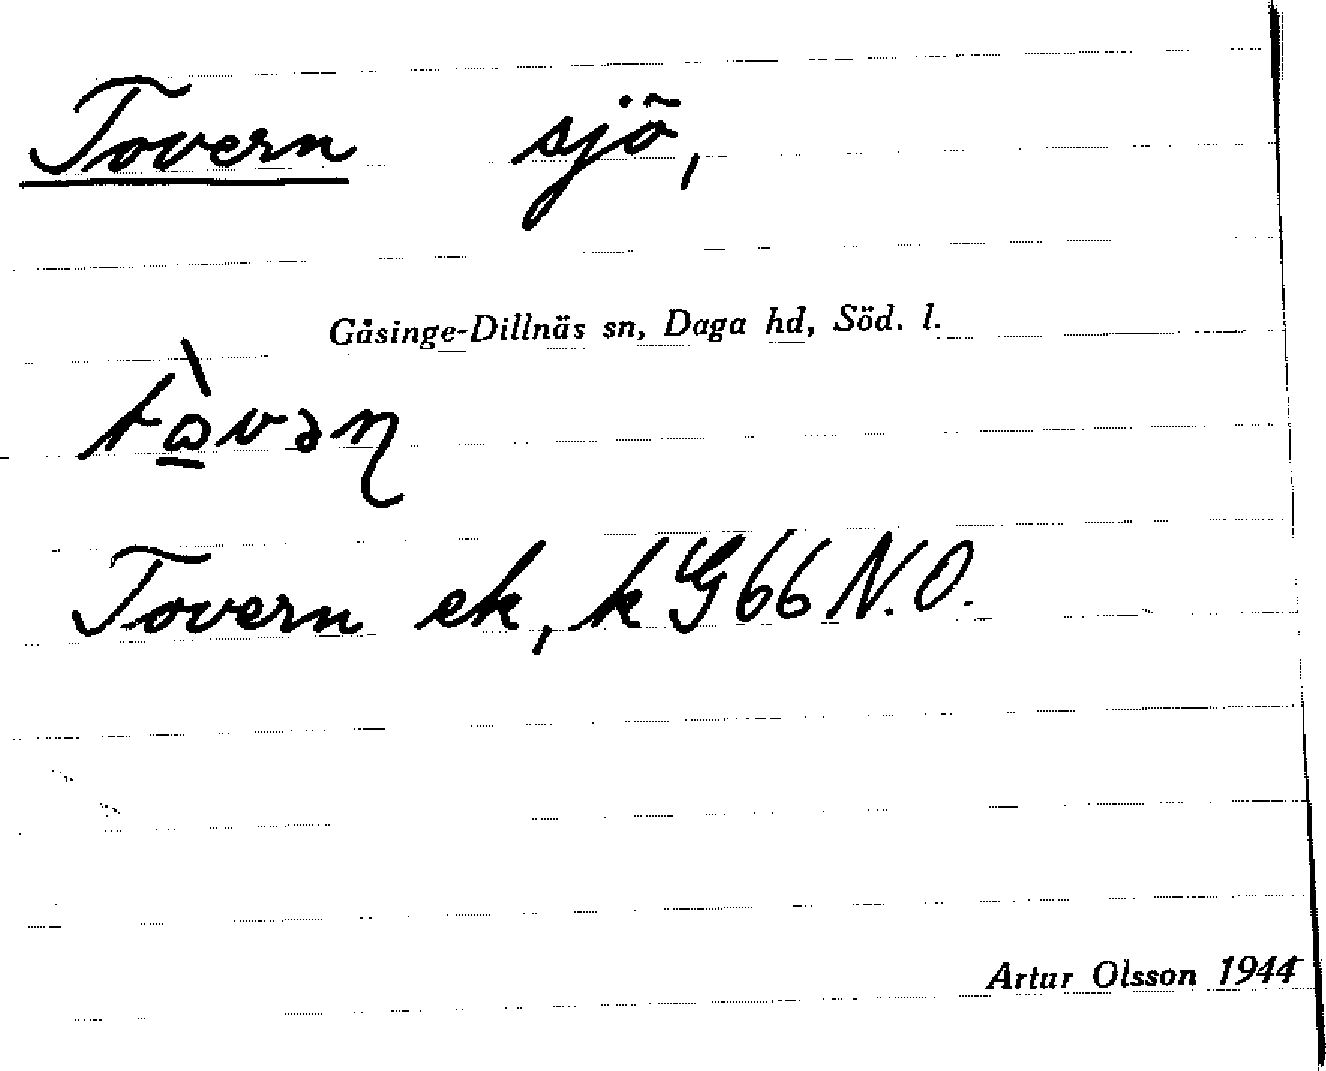 Tovern sjö,
Gåsinge-Dillnäs sn, Daga hd, Söd. l.
Tovern ek, k G66 N.O.
Artur Olsson 1944